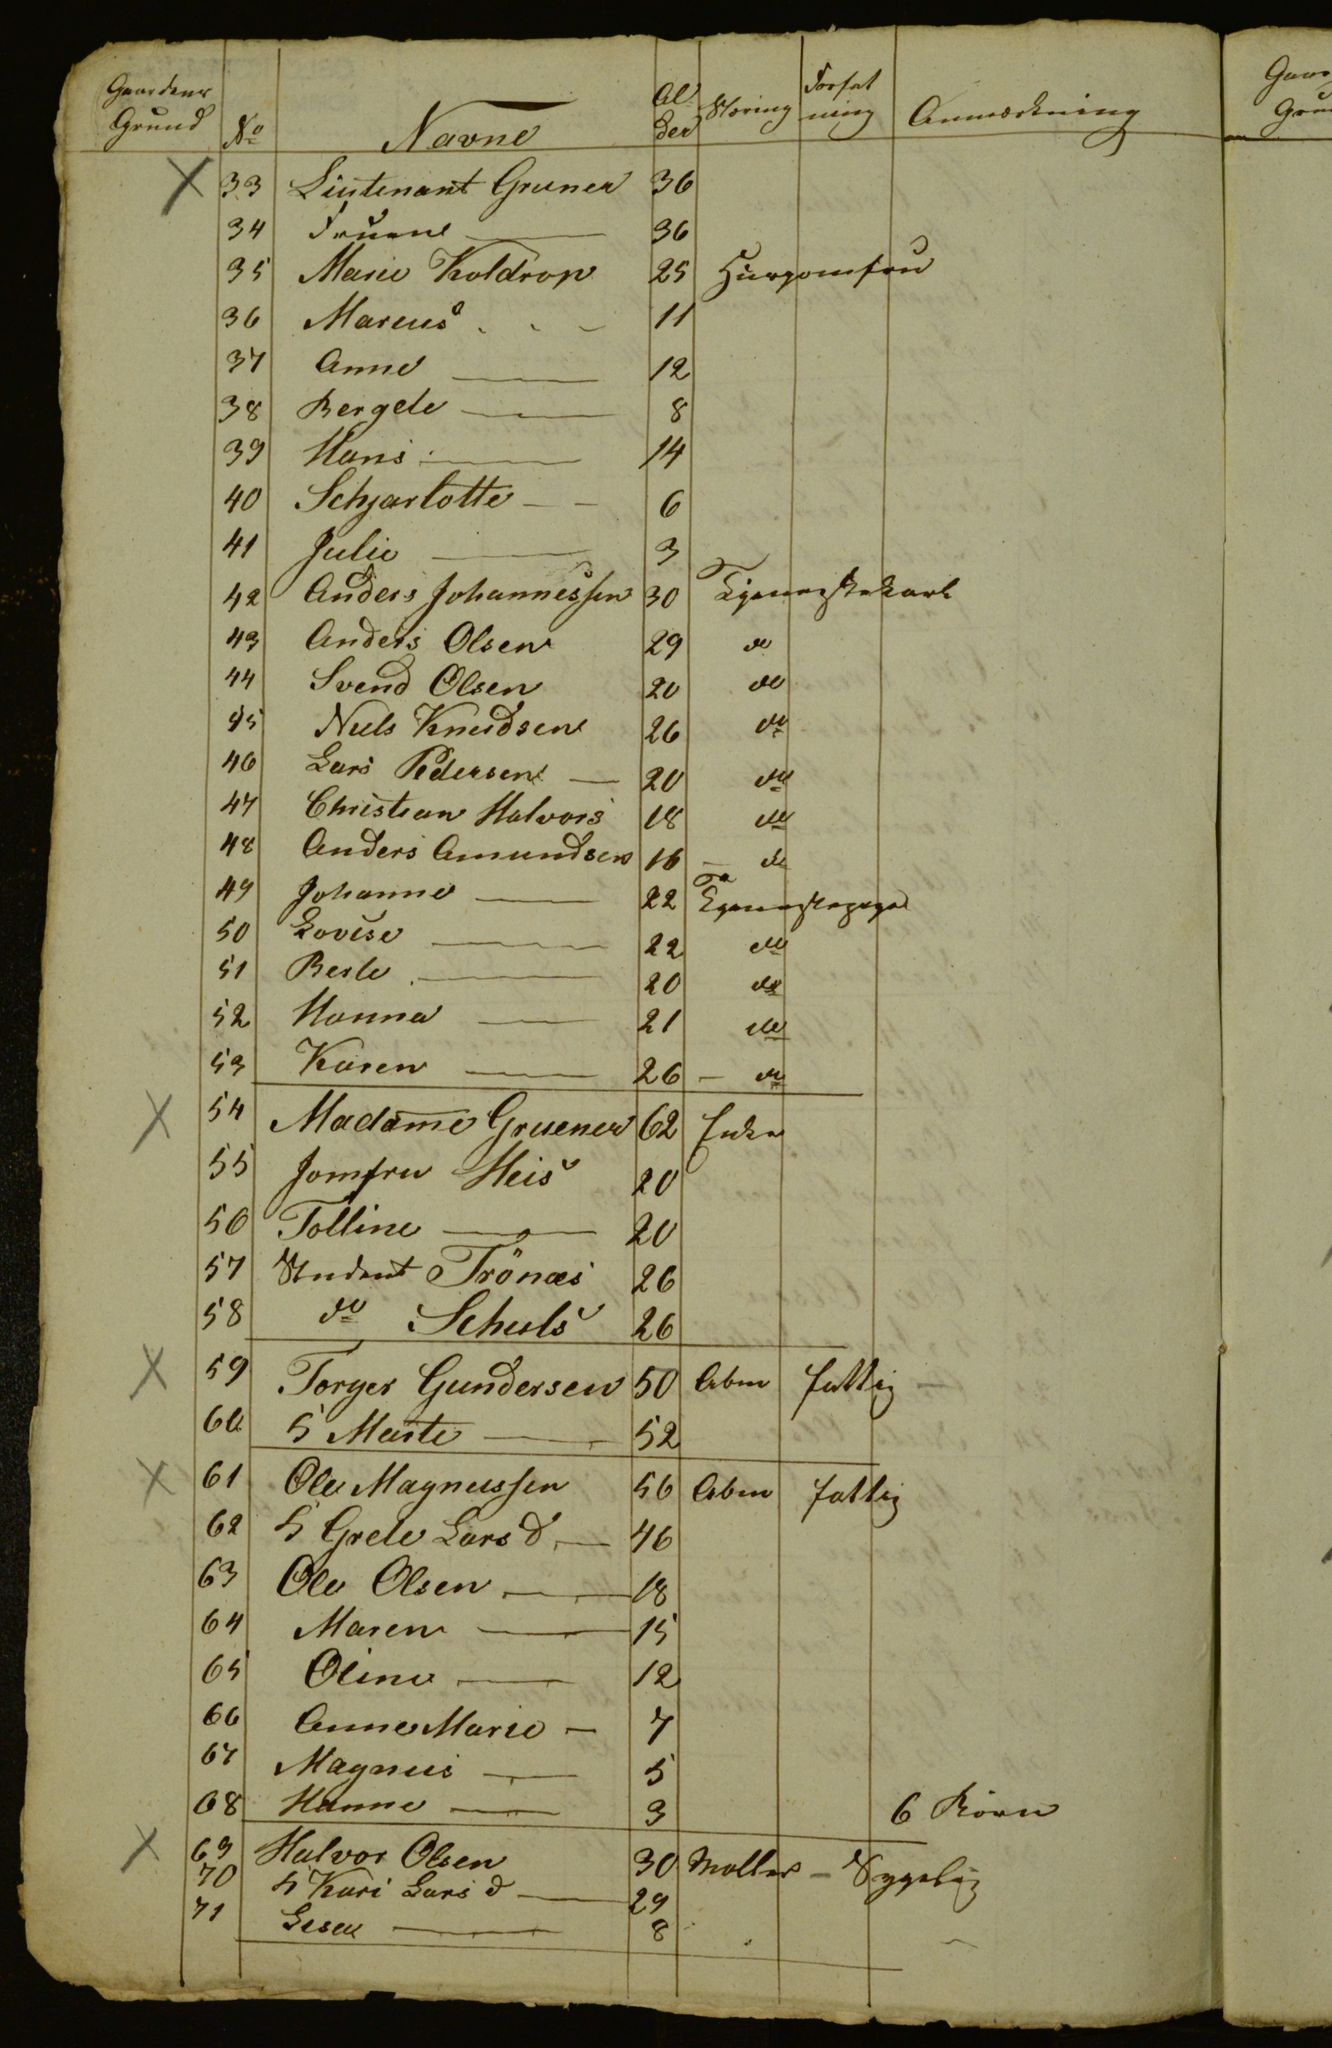 Gaardens Grund | No | Navne | Alder | Næring | Forfatning | Anmærkning
33 Lieutenant Gruner 36
34 Fruen — 36
35 Marie Koldrop 25 Huusjomfru
36 Marcus 11
37 Anne — 12
38 Bergete — 8
39 Hans — 14
40 Schjarlotte — 6
41 Julie — 3
42 Anders Johannessen 30 Tjenestekarl
43 Anders Olsen 29 do
44 Svend Olsen 20 do
45 Niels Knudsen 26 do
46 Lars Pedersen — 20 do
47 Christian Halvors 18 do
48 Anders Amundsen 16 — do
49 Johanne — 22 Tjenestepige
50 Lovise — 22 do
51 Berte — 20 do
52 Hanna — 21 do
53 Karen — 26 — do
54 Madame Gruener 62 Enke
55 Jomfru Heis 20
56 Tolline — 20
57 Student Trönæs 26
58 do Schuls 26
59 Torger Gundersen 50 Abm fattig
60 h Marte — 52
61 Ole Magnussen 56 Abm fattig
62 h Grete Lars d — 46
63 Ole Olsen — 18
64 Maren — 15
65 Oline — 12
66 Anne Marie — 7
67 Magnus — 5
68 Hanne — 3 6 Börn
69 Halvor Olsen 30 Møller — Sygelig
70 h Kari Lars d — 29
71 — 8
Gaar
Gru